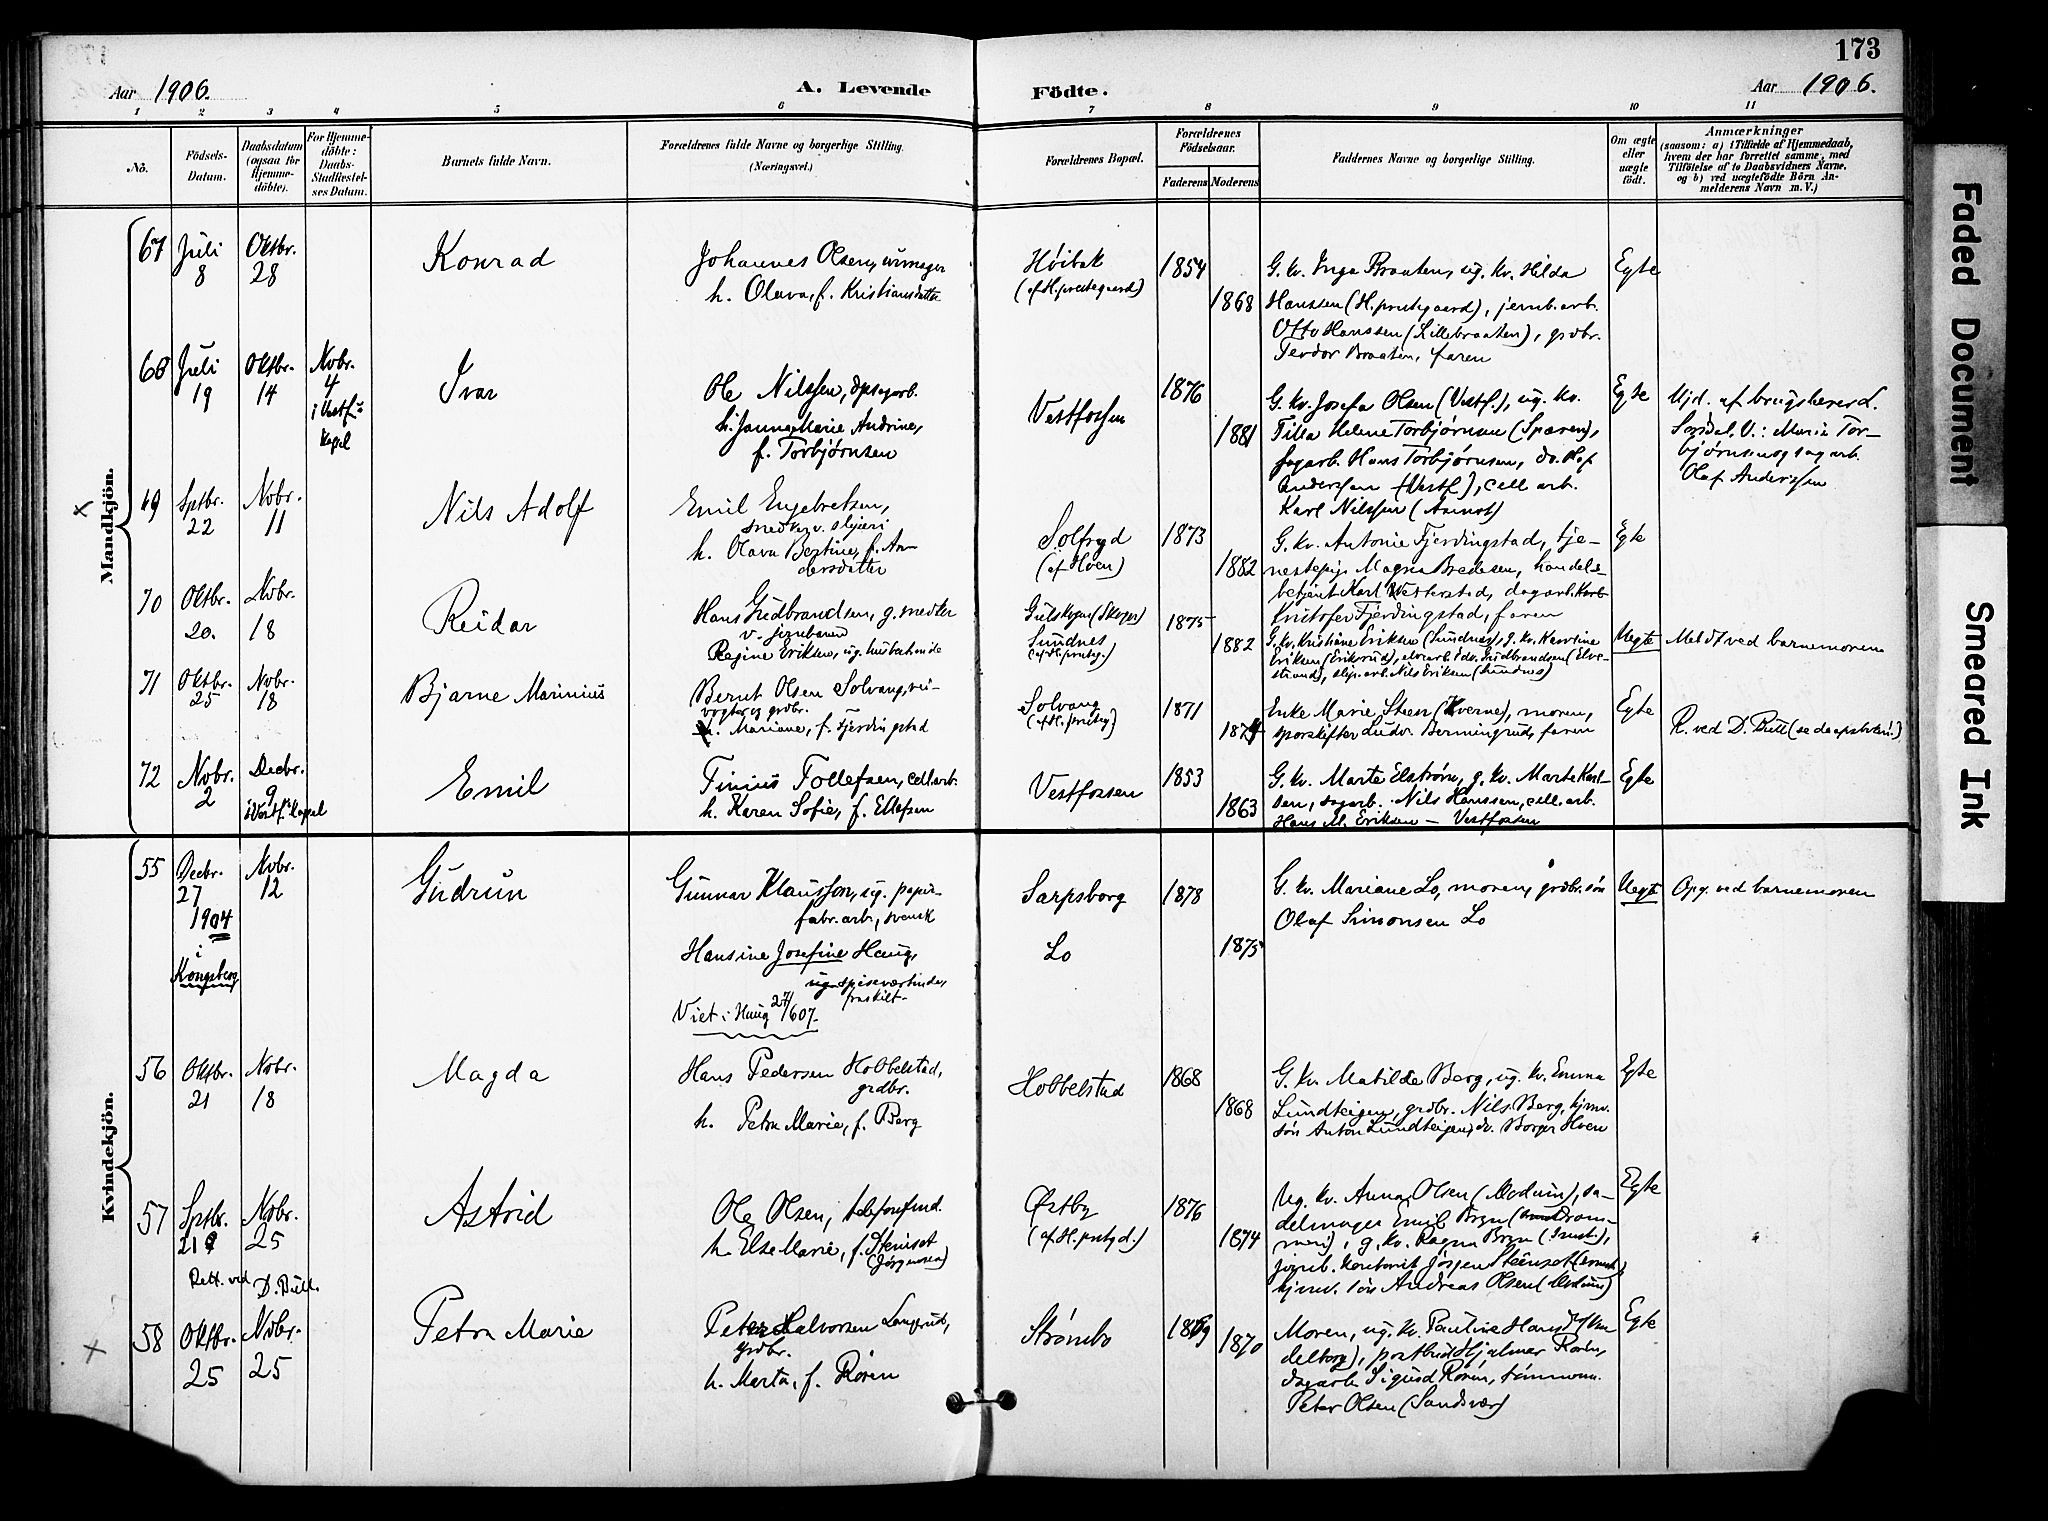 173
Aar 1906.
A. Levende Födte.
Aar 1906.
1 2 3 4 5 6 7 8 9 10 11
No.
Födsels-
Datum.
Daabsdatum
(ogsaa for
Hjemme-
döbte).
For Hjemme-
döbte:
Daabs-
Stadfæstel-
ses Datum.
Barnets fulde Navn.
Forældrenes fulde Navne og borgerlige Stilling.
(Næringsvei.)
Forældrenes Bopæl.
Forældrenes
Födselsaar.
Faderens Moderens
Faddernes Navne og borgerlige Stilling.
Om ægte
eller
uægte
födt.
Anmærkninger
(saasom: a) i Tilfælde af Hjemmedaab,
hvem der har forrettet samme, med
Tilföielse af to Daabsvidners Navne,
og b) ved uægtefödte Börn An-
melderens Navn m. V.)
Mandkjön.
67
Juli
8
Oktbr.
28
Konrad
Johannes Olsen,
h. Olava, f. Kristiansdatter
Høibak
(af H.prestegaard)
1854
1868
G. kv. Inga Braaten, ug. kv. Hilda
Hanssen (H.prestegaard), jernb.arb.
Otto Hanssen (Lillebraaten), grdbr.
Teodor Braaten, faren
Egte
68
Juli
19
Oktbr.
14
Novbr.
4
i Vestf.
kapel
Ivar
Ole Nilssen, dpsagarb.
h. Janna Marie Andrine,
f. Torbjørnsen
Vestfossen
1876
1881
G. kv. Josefa Olsen (Vestf.), ug. kv.
Tilla Helene Torbjørnsen (Spæren),
sagarb. Hans Torbjørnsen, do. Olaf
Anderssen (Vestf.), cell.arb.
Karl Nilssen (Aamot)
Egte
Hjd. af
Sørdal, V.: Marie Tor-
bjørnsen og sagarb.
Olaf Anderssen
69
Sptbr.
22
Novbr.
11
Nils Adolf
Emil Engebretsen,
snedker v. sliperi
h. Olava Bertine, f. An-
dersdatter
Solfryd
(af Hoen)
1873
1882
G. kv. Antonie Fjerdingstad, tje-
nestepige Magna Bredesen, handels-
betjent Karl Vesterstad, dagarb. Karl
Kristofer Fjerdingstad, faren
Egte
70
Oktbr.
20.
Novbr.
18
Reidar
Hans Gudbrandsen, g. smed
v. jernbanen
Regine Eriksen, ug. husbestinde
Gulskogen (Skoger)
Sundnes
(af H.presteg.)
1875
1882
G. kv. Kristiane Eriksen (Sundnes), g. kv. Karoline
Eriksen (Eriksrud), elvearb. Edv. Gudbrandsen (Elve-
strand), slip.arb. Nils Eriksen (Sundnes)
Uegte
Meldt ved barnemoren
71
Oktbr.
25
Novbr.
18
Bjarne Marinius
Bernt Olsen Solvang, vei-
vogter og grdbr.
h. Mariane, f. Fjerdingstad
Solvang
(af H.presteg)
1871
1874
Enke Marie Steen (Kverne), moren,
sporskifter Ludv. Bermingrud, faren
Egte
R. ved D. Bull (se daapsattest.)
72
Novbr.
2
Decbr.
9
i Vestf. kapel
Emil
Tinius Tollefsen, cell.arb.
h. Karen Sofie, f. Ellefsen
Vestfossen
1853
1863
G. kv. Marte Elstrøm, g. kv. Marte Karl-
sen, sagarb. Nils Hanssen, cell.arb.
Hans M. Eriksen – Vestfossen
Egte
Kvindekjön.
55
Decbr.
27
1904
i
Kongsberg
Novbr.
12
Gudrun
Gunnar Klausson, ug. papir-
fabr.arb., svensk
Hansine Josefine Haug,
ug. spiseværtinde,
fraskilt
Viet i Haug 27/6 07.
Sarpsborg
Lo
1878
1875
G. kv. Mariane Lo, moren, grdbr.søn
Olaf Simonsen Lo
Uegte
Opg. ved barnemoren
56
Oktbr.
21
Novbr.
18
Magda
Hans Pedersen Hobbelstad,
grdbr.
h. Petra Marie, f. Berg
Hobbelstad
1868
1868
G. kv. Matilde Berg, ug. kv. Emma
Lundteigen, grdbr. Nils Berg, hjmv.
søn Anton Lundteigen, do. Borger Hoen
Egte
57
Sptbr.
21
Novbr.
25
Rett. ved D. Bull.
Astrid
Ole Olsen,
h. Else Marie, f. Stenset
(Jørgensen)
Østby
(af H.prstgd.)
1876
1874
Ug. kv. Anna Olsen (Modum), sa-
delmager Emil Bryn (Dram-
men), g. kv. Ragna Bryn
jernb. kontorist Jørgen Stenset
hjmv. søn Andreas Olsen (Modum)
Egte
58
Oktbr.
25
Novbr.
25
Petra Marie
Peter Halvorsen Langrud,
grdbr.
h. Marta, f. Røren
Strømbo
1869
1870
Moren, ug. kv. Pauline
postbud Hjalmar Røren,
dagarb. Sigurd Røren, tømmerm.
Peter Olsen (Sandsvær)
Egte
Faded Document
Smeared Ink